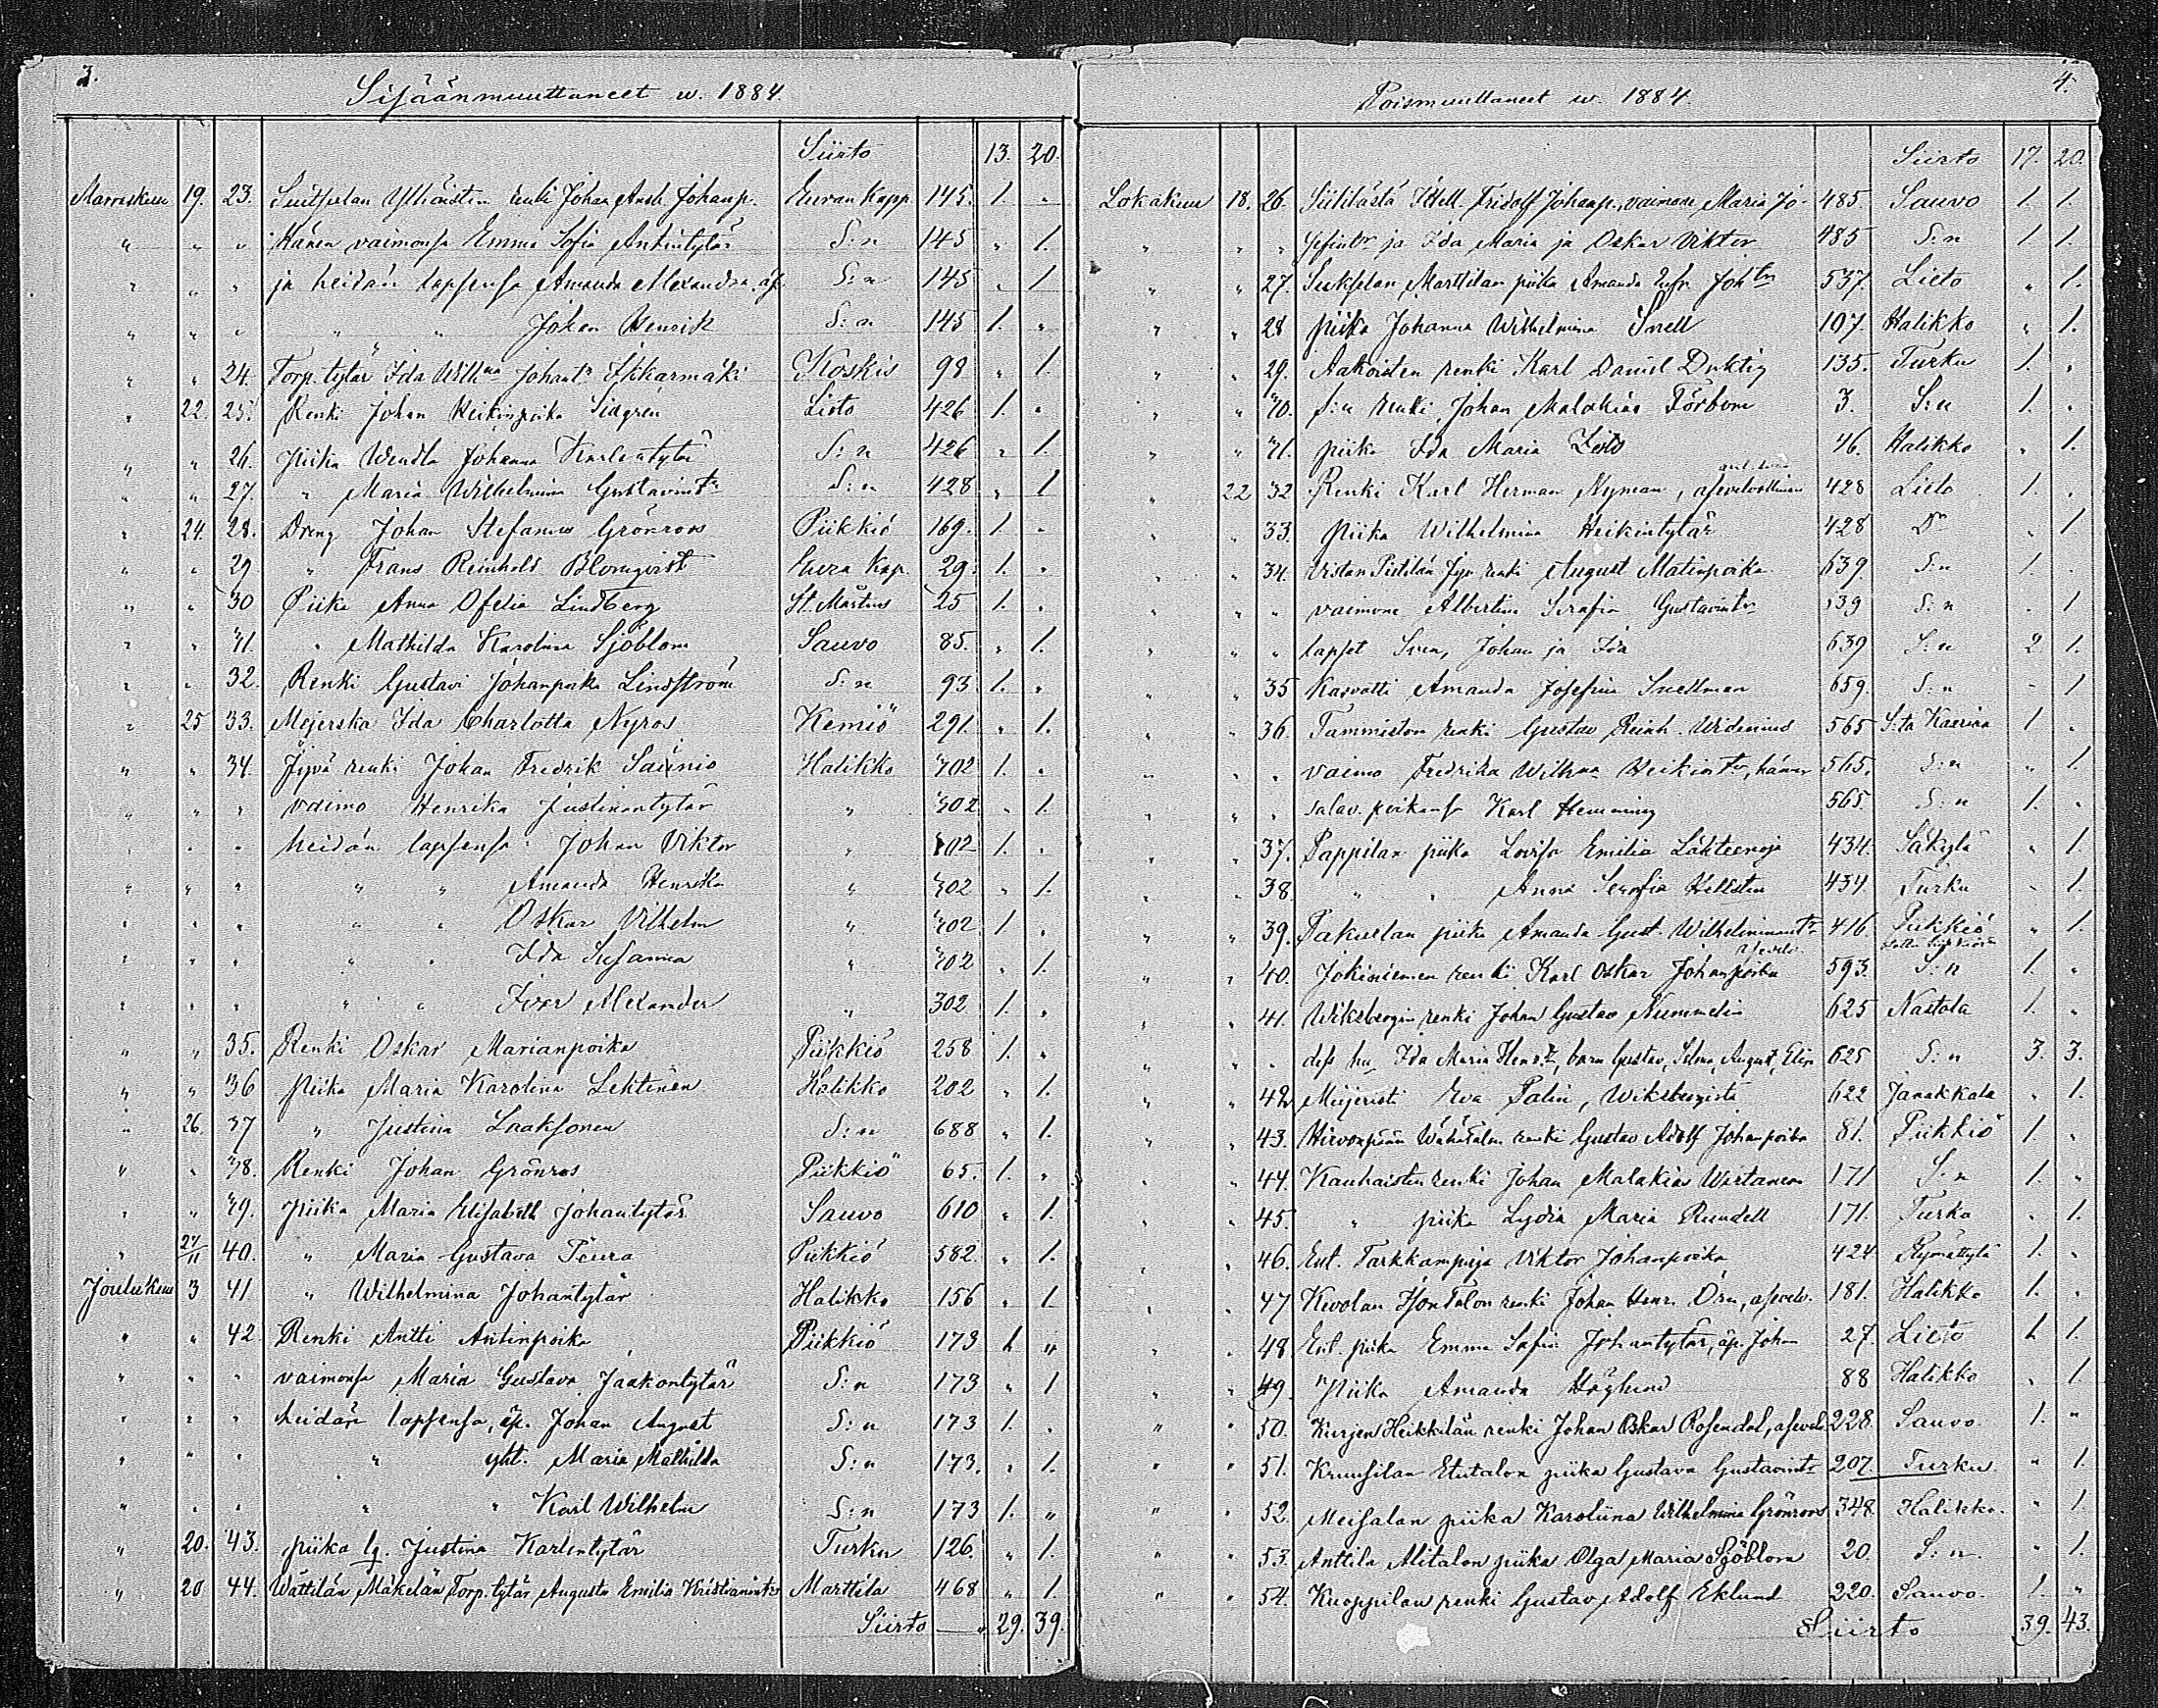 3.
Sisäänmuuttaneet w. 1884.
Siirto 13. 20.
Marraskuu 19. 23. Yliöisten renki Johan Johanp. Euran Kapp. 145. 1. "
" " " Hänen vaimonsa Emma Sofia Antintytär S:n 145 " 1.
" " " ja heidän lapsensa Amanda Alexandra, äp. S:n 145 " 1
" " " " " Johan Henrik S:n 145 1. "
" " 24. Torp. tytär Ida Wilh:na Johant:r Ikkarmäki Koskis 98 " 1.
" 22. 25. Renki Johan Heikinpoika Sidgren Lieto 426 1. "
" " 26. Piika Wendla Johanna Karlentytär S:n 426 " 1.
" " 27. " Maria Wilhelmina Gustavint:r S:n 428 " 1
" 24. 28. Dreng Johan Stefanus Grönroos Piikkiö 169. 1. "
" " 29 " Frans Reinhold Blomqvist Eura Kap. 29. 1. "
" " 30 Piika Anna Ofelia Lindberg St. Mårtens 25 1. "
" " 31. " Mathilda Karolina Sjöblom Sauvo 85. " 1.
" " 32. Renki Gustavi Johanpoika Lindström S:n 93 1. "
" 25 33. Mejerska Ida Charlotta Nyros Kemiö 291. " 1.
" " 34. Jyvä renki Johan Fredrik Sainio Halikko 302 1. "
" " " vaimo Henrika Justinantytär " 302 " 1.
" " " heidän lapsensa Johan Viktor " 302 1. "
" " " " " Amanda Henrika " 302 " 1.
" " " " " Oskar Vilhelm " 302 1. "
" " " " " Ida Susanna " 302 " 1.
" " " " " Ivar Alexander " 302 1. "
" " 35. Renki Oskar Marianpoika Piikkiö 258 1. "
" " 36 Piika Maria Karolina Lehtinen Halikko 202 " 1.
" 26. 37 " Justina Laaksonen S:n 688 " 1.
" " 38. Renki Johan Grönros Piikkiö 65. 1. "
" " 39. Piika Maria Elisabeth Johantytär Sauvo 610 " 1.
" 27/11 40. " Maria Gustava Peura Piikkiö 582. " 1.
Joulukuu 3 41 " Wilhelmina Johantytär Halikko 156 " 1
" " 42. Renki Antti Antinpoika Piikkiö 173 1. "
" " " vaimonsa Maria Gustava Jaakontytär S:n 173 " 1
" " " heidän lapsensa, äp. Johan August S:n 173 1. "
" " " " yht. Maria Mathilda S:n 173. " 1.
" " " " " Karl Wilhelm S:n 173 1. "
" 20. 43. piika lg. Justina Karlentytär Turku 126. " 1.
" 20 44. Wättilän Mäkelän Torp. tytär Augusta Emilia Kristianint:r Marttila 468 " 1.
Siirto 29. 39.
4.
Poismuuttaneet w. 1884.
Siirto 17. 20.
Lokakuu 18. 26. Fridolf Johanp., vaimone Maria Jo- 485. Sauvo 1. 1.
" " " sefint:r ja Ida Maria ja Oskar Viktor 485 S:n 1. 1.
" " 27. Marttilan piika Amanda Joh:tr 537. Lieto " 1.
" " 28 piika Johanna Wilhelmina Snell 107. Halikko " 1.
" " 29. Aakoisten renki Karl Daniel Duktig 135. Turku 1. "
" " 30. S:n renki Johan Malakias Törbom 3. S:n 1. "
" " 31. piika Ida Maria 46. Halikko " 1.
" 22 32. Renki Karl Herman Nyman, asevelvollinen 428 Lieto 1. "
" " 33. piika Wilhelmina Heikintytär 428 D:o " 1
" " 34. Vistan Pietilän renki August Matinpoika 639. S:n 1. "
" " " vaimone Albertina Serafia Gustavint:r 639 S:n " 1
" " " lapset Sven, Johan ja Ida 639 S:n 2 1.
" " 35 Kasvatti Amanda Josefina Snellman 659. S:n " 1
" " 36. Tammiston renki Gustav Reinh. Widenius 565 S:ta Kaarina 1. "
" " " vaimo Fredrika Wilh:na Heikint:r, hänen 565. S:n " 1
" " " salav. poikansa Karl Hemming 565 S:n 1. "
" " 37. Pappilan piika Lovisa Emilia Lähteenoja 434. Säkylä " 1
" " 38. " " Anna Serafia Hellsten 434 Turku " 1.
" " 39. Pakurlan piika Amanda Gust. Wilhelminant:r 416 Piikkiö " 1.
" " 40. Jokiniemen renki Karl Oskar Johanpoika 593. S:n 1. "
" " 41. Wiksbergin renki Johan Gustav Nummelin 625 Nastola 1. "
" " " dess hu Ida Maria Henr:tr, barn Gustav, Selma, August, Elin 625 S:n 3. 3.
" " 42 Meijeristi Eva Palin, Wiksbergistä 622 Janakkala " 1.
" " 43. Hirvonpään Wähätalon renki Gustav Adolf Johanpoika 81. Piikkiö 1. "
" " 44. Kauhaisten renki Johan Malakias Wirtanen 171 S:n 1. "
" " 45. " piika Lydia Maria Rundell 171. Turku " 1.
" " 46. Ent. Tarkkampuja Viktor Johanpoika 424 Rymättylä 1. "
" " 47 Kevolan Isontalon renki Johan Henr. Örn, asevelv. 181. Halikko 1. "
" " 48. Ent. piika Emma Sofia Johantytär, äp. Johan 27. Lieto 1. 1.
" " 49. Piika Amanda Höglund 88 Halikko " 1
" " 50. Kurjen Heikkilän renki Johan Oskar Rosendal, asevel. 228. Sauvo. 1. "
" " 51. Kruusilan Etutalon piika Gustava Gustavint:r 207. Turku. " 1.
" " 52. Meisalan piika Karoliina Wilhelmina Grönroos 348. Halikko. " 1.
" " 53. Anttila Alitalon piika Olga Maria Sjöblom 20. S:n. " 1.
" " 54. Kuoppilan renki Gustav Adolf Eklund 220. Sauvo. 1. "
Siirto 39. 43.